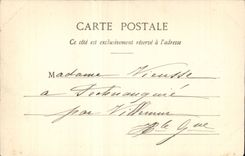 CARTE POSTALE
Ce côté est exclusivement réservé à l'adresse
Madame Vieusse
a
par Villemur
Hte Gne